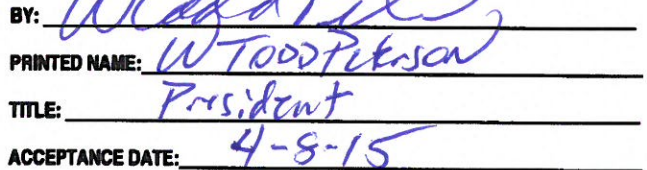 BY:
PRINTED NAME: W TODD Peterson
TITLE: President
ACCEPTANCE DATE: 4-8-15